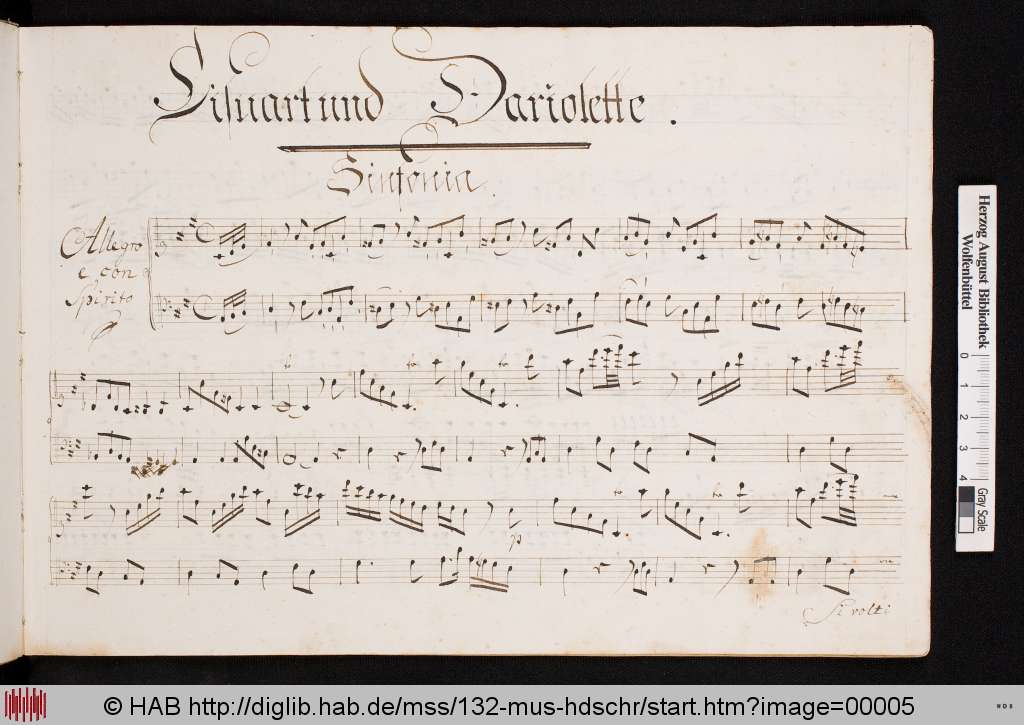 Lisuart und Dariolette.
Sinfonia.
Allegro
e con
Spirito
tr
tr
tr
tr
tr
p
Si volti
Herzog August Bibliothek
Wolfenbüttel
0 1 2 3 4
Gray Scale
© HAB http://diglib.hab.de/mss/132-mus-hdschr/start.htm?image=00005
WDB